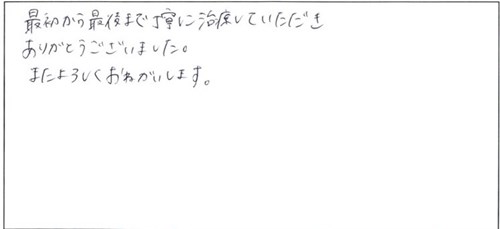 最初から最後まで丁寧に治療していただき
ありがとうございました。
またよろしくおねがいします。